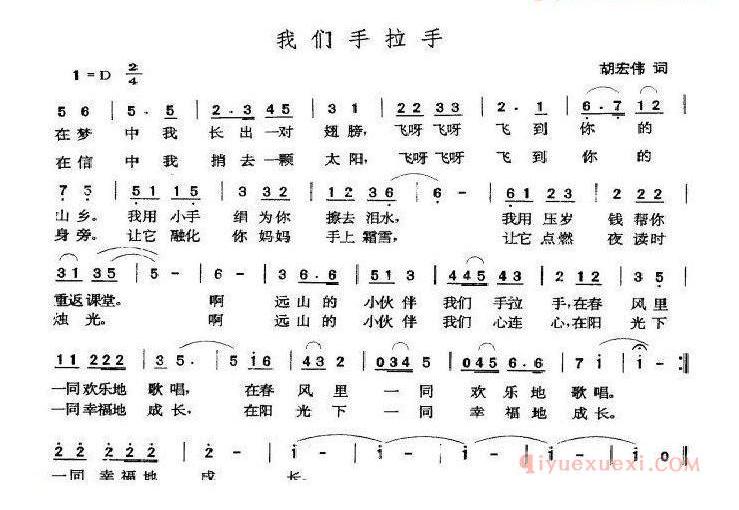 我们手拉手
1=D 2/4
胡宏伟 词
5 6 | 5. 5 | 2.3 45 | 3 1 | 22 33 | 2. 1 | 6.7 12 |
在梦 中我 长出一对 翅膀, 飞呀飞呀 飞到你的
在信 中我 捎去一颗 太阳, 飞呀飞呀 飞到你的
7 5 | 51 15 | 3 2 2 | 12 36 | 6 - | 61 23 | 2 22 |
山乡。 我用小手 绢为你 擦去泪水, 我用压岁 钱帮你
身旁。 让它融化 你妈妈 手上霜雪, 让它点燃 夜读时
31 35 | 5 - | 6 - | 3 6.6 | 51 3 | 445 43 | 2 12 | 35
重返课堂。 啊 远山的 小伙伴 我们手拉 手,在春 风里
烛光。 啊 远山的 小伙伴 我们心连 心,在阳 光下
11 222 | 35. | 5 16 | 43 2 | 034 5 | 045 6.6 | 7 i | i - :||
一同欢乐地 歌唱, 在春 风里 一同 欢乐地 歌唱。
一同幸福地 成长, 在阳 光下 一同 幸福地 成长。
2 2 2 2 2 | 2 - | 2 - | i - | i - | i - | i 0
一同幸福地 成 长。
iyuexuexi.com